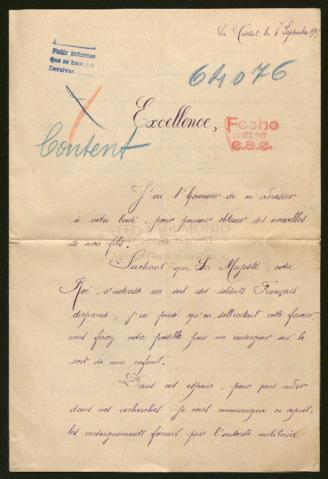 La Ciotat, le 8 Septembre 191
Pedir informes
Que se hace
Devolver
64076
Excellence,
Fecho
e.a.e.
Content
J'ai l'honneur de m'adresser
à votre bonté, pour pouvoir obtenir des nouvelles
de mon fils.
Sachant que Sa Majesté, votre
Roi, s'intéresse au sort des soldats Français
disparus, j'ai pensé qu'en sollicitant cette faveur
vous feriez votre possible pour me renseigner sur le
sort de mon enfant.
Dans cet espoir, pour vous aider
dans vos recherches je vous communique ci après,
les renseignements fournis par l'autorité militaire